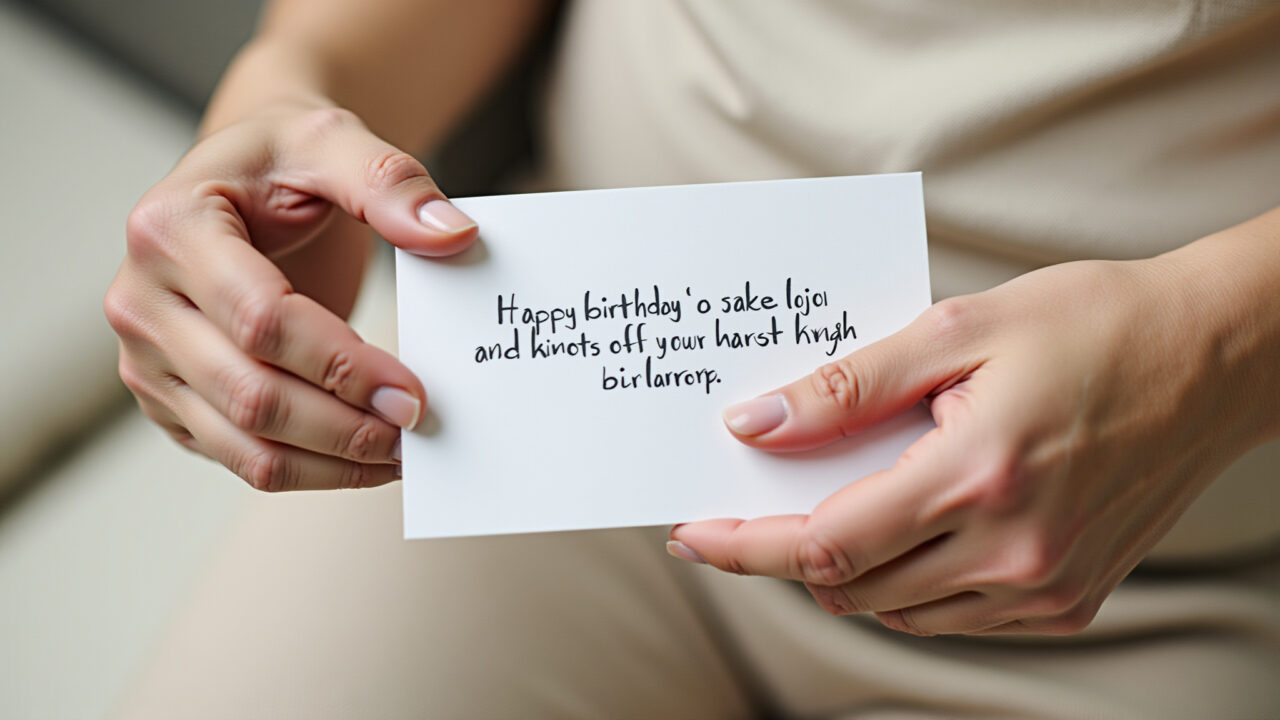 Happy birthday 'o sake lojoi
and kinots off your harst kwgh
birlarrorp.